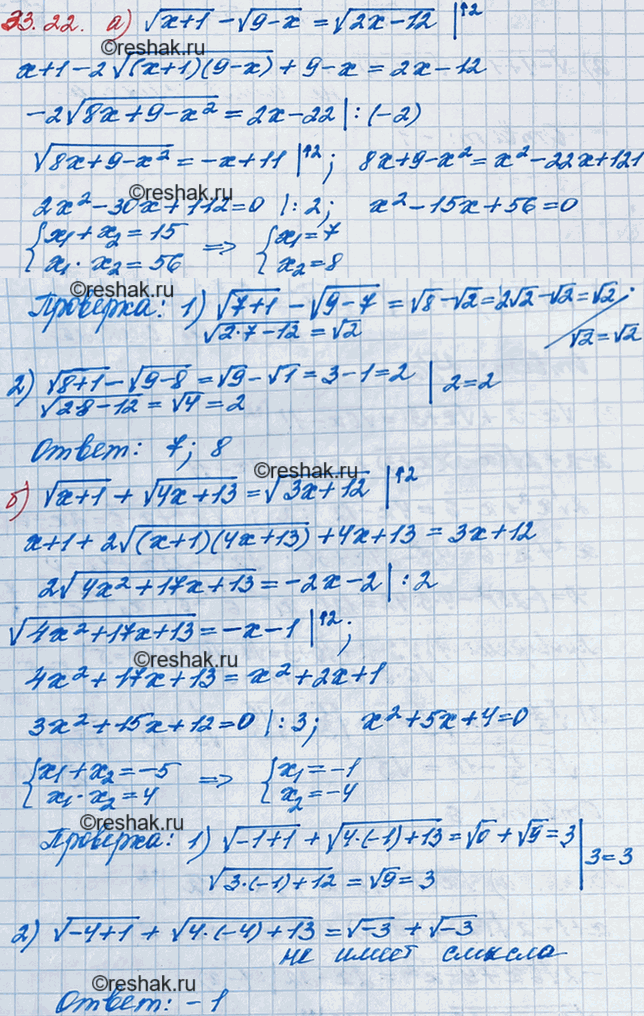 23.22. а) √(x+1) − √(9−x) = √(2x−12) |↑2
©reshak.ru
x+1−2√((x+1)(9−x)) + 9−x = 2x−12
−2√(8x+9−x²) = 2x−22 |: (−2)
√(8x+9−x²) = −x+11 |↑2; 8x+9−x² = x²−22x+121
©reshak.ru
2x²−30x+112=0 |: 2; x²−15x+56=0
{x₁+x₂=15 ⇒ {x₁=7
x₁·x₂=56 x₂=8
©reshak.ru
Проверка: 1) √(7+1) − √(9−7) = √8−√2 = 2√2−√2 = √2
√(2·7−12) = √2 √2=√2
2) √(8+1) − √(9−8) = √9−√1 = 3−1=2 | 2=2
√(2·8−12) = √4 = 2
Ответ: 7; 8
©reshak.ru
б) √(x+1) + √(4x+13) = √(3x+12) |↑2
x+1+2√((x+1)(4x+13)) + 4x+13 = 3x+12
2√(4x²+17x+13) = −2x−2 | : 2
√(4x²+17x+13) = −x−1 |↑2;
©reshak.ru
4x²+17x+13 = x²+2x+1
3x²+15x+12=0 |: 3; x²+5x+4=0
{x₁+x₂=−5 ⇒ {x₁=−1
x₁·x₂=4 x₂=−4
©reshak.ru
Проверка: 1) √(−1+1) + √(4·(−1)+13) = √0 + √9 = 3 | 3=3
√(3·(−1)+12) = √9 = 3
2) √(−4+1) + √(4·(−4)+13) = √−3 + √−3
не имеет смысла
©reshak.ru
Ответ: −1